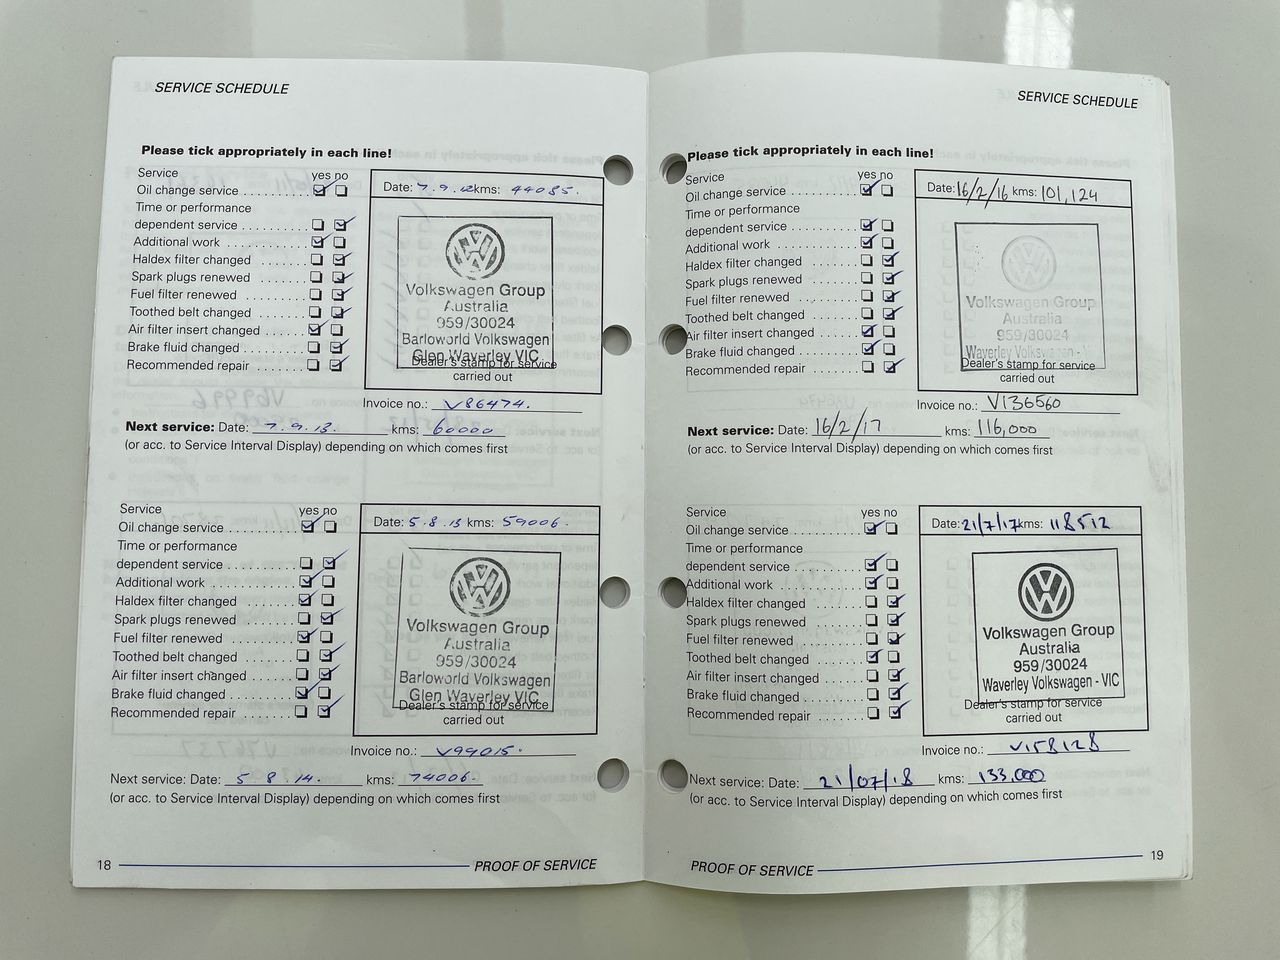 SERVICE SCHEDULE
Please tick appropriately in each line!
Service yes no
Oil change service
Time or performance
dependent service
Additional work
Haldex filter changed
Spark plugs renewed
Fuel filter renewed
Toothed belt changed
Air filter insert changed
Brake fluid changed
Recommended repair
Date: 7.9.12 kms: 44085.
Volkswagen Group
Australia
959/30024
Barloworld Volkswagen
Glen Waverley VIC
Dealer's stamp for service
carried out
Invoice no.: V86474.
Next service: Date: 7.9.13. kms: 60000
(or acc. to Service Interval Display) depending on which comes first
Service yes no
Oil change service
Time or performance
dependent service
Additional work
Haldex filter changed
Spark plugs renewed
Fuel filter renewed
Toothed belt changed
Air filter insert changed
Brake fluid changed
Recommended repair
Date: 5.8.13 kms: 59006.
Volkswagen Group
Australia
959/30024
Barloworld Volkswagen
Glen Waverley VIC
Dealer's stamp for service
carried out
Invoice no.: V99015.
Next service: Date: 5.8.14. kms: 74006.
(or acc. to Service Interval Display) depending on which comes first
18 PROOF OF SERVICE
SERVICE SCHEDULE
Please tick appropriately in each line!
Service yes no
Oil change service
Time or performance
dependent service
Additional work
Haldex filter changed
Spark plugs renewed
Fuel filter renewed
Toothed belt changed
Air filter insert changed
Brake fluid changed
Recommended repair
Date: 16/2/16 kms: 101,124
Volkswagen Group
Australia
959/30024
Waverley Volkswagen - V
Dealer's stamp for service
carried out
Invoice no.: V136560
Next service: Date: 16/2/17 kms: 116,000
(or acc. to Service Interval Display) depending on which comes first
Service yes no
Oil change service
Time or performance
dependent service
Additional work
Haldex filter changed
Spark plugs renewed
Fuel filter renewed
Toothed belt changed
Air filter insert changed
Brake fluid changed
Recommended repair
Date: 21/7/17 kms: 118512
Volkswagen Group
Australia
959/30024
Waverley Volkswagen - VIC
Dealer's stamp for service
carried out
Invoice no.: V158128
Next service: Date: 21/07/18 kms: 133,000
(or acc. to Service Interval Display) depending on which comes first
PROOF OF SERVICE 19